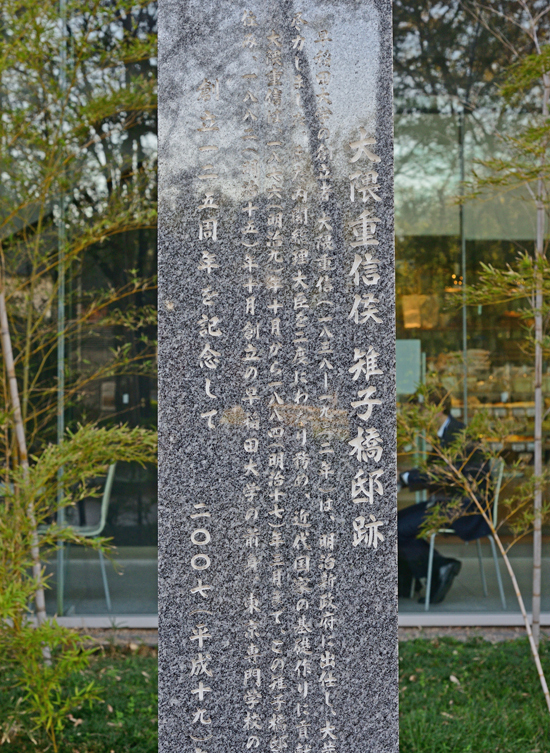 大隈重信侯 雉子橋邸跡
早稲田大学の創立者 大隈重信(一八三八―一九二二年)は、明治新政府に出仕し、大蔵
尽力しました。 内閣総理大臣を二度にわたり務め、近代国家の基礎作りに貢献
大隈重信は、一八七六(明治九)年十月から一八八四(明治十七)年三月まで、この雉子橋邸
一八八二(明治十五)年十月創立の早稲田大学の前身、東京専門学校の
創立一二五周年を記念して 二〇〇七(平成十九)年